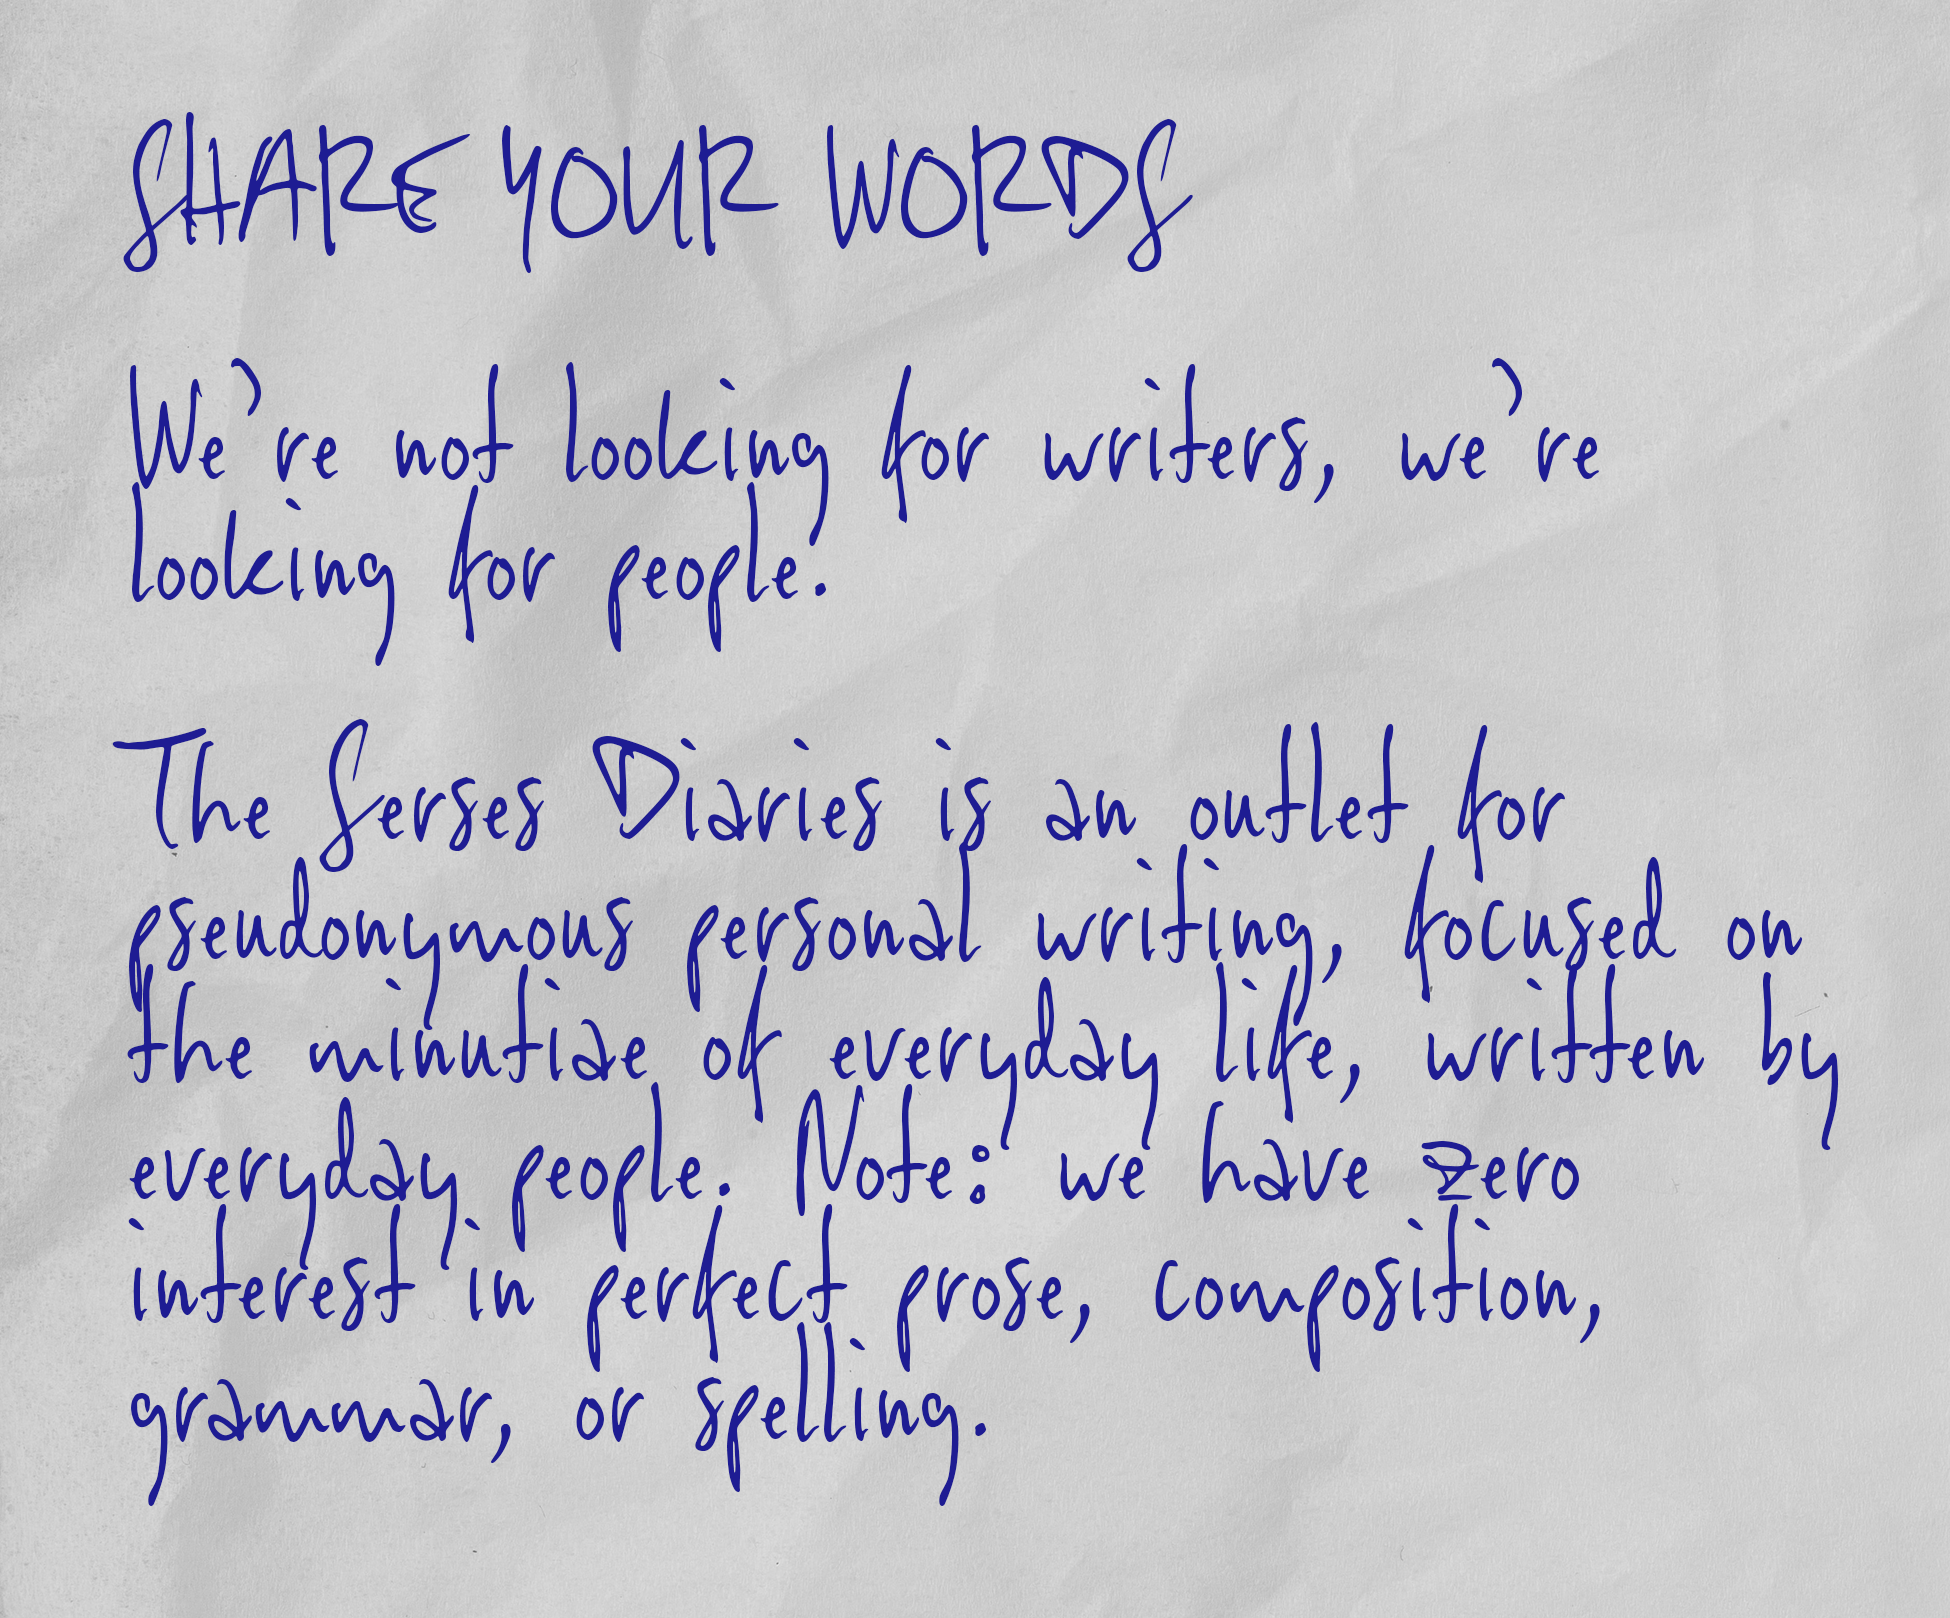 SHARE YOUR WORDS
We’re not looking for writers, we’re
looking for people.
The Serses Diaries is an outlet for
pseudonymous personal writing, focused on
the minutiae of everyday life, written by
everyday people. Note: we have zero
interest in perfect prose, composition,
grammar, or spelling.